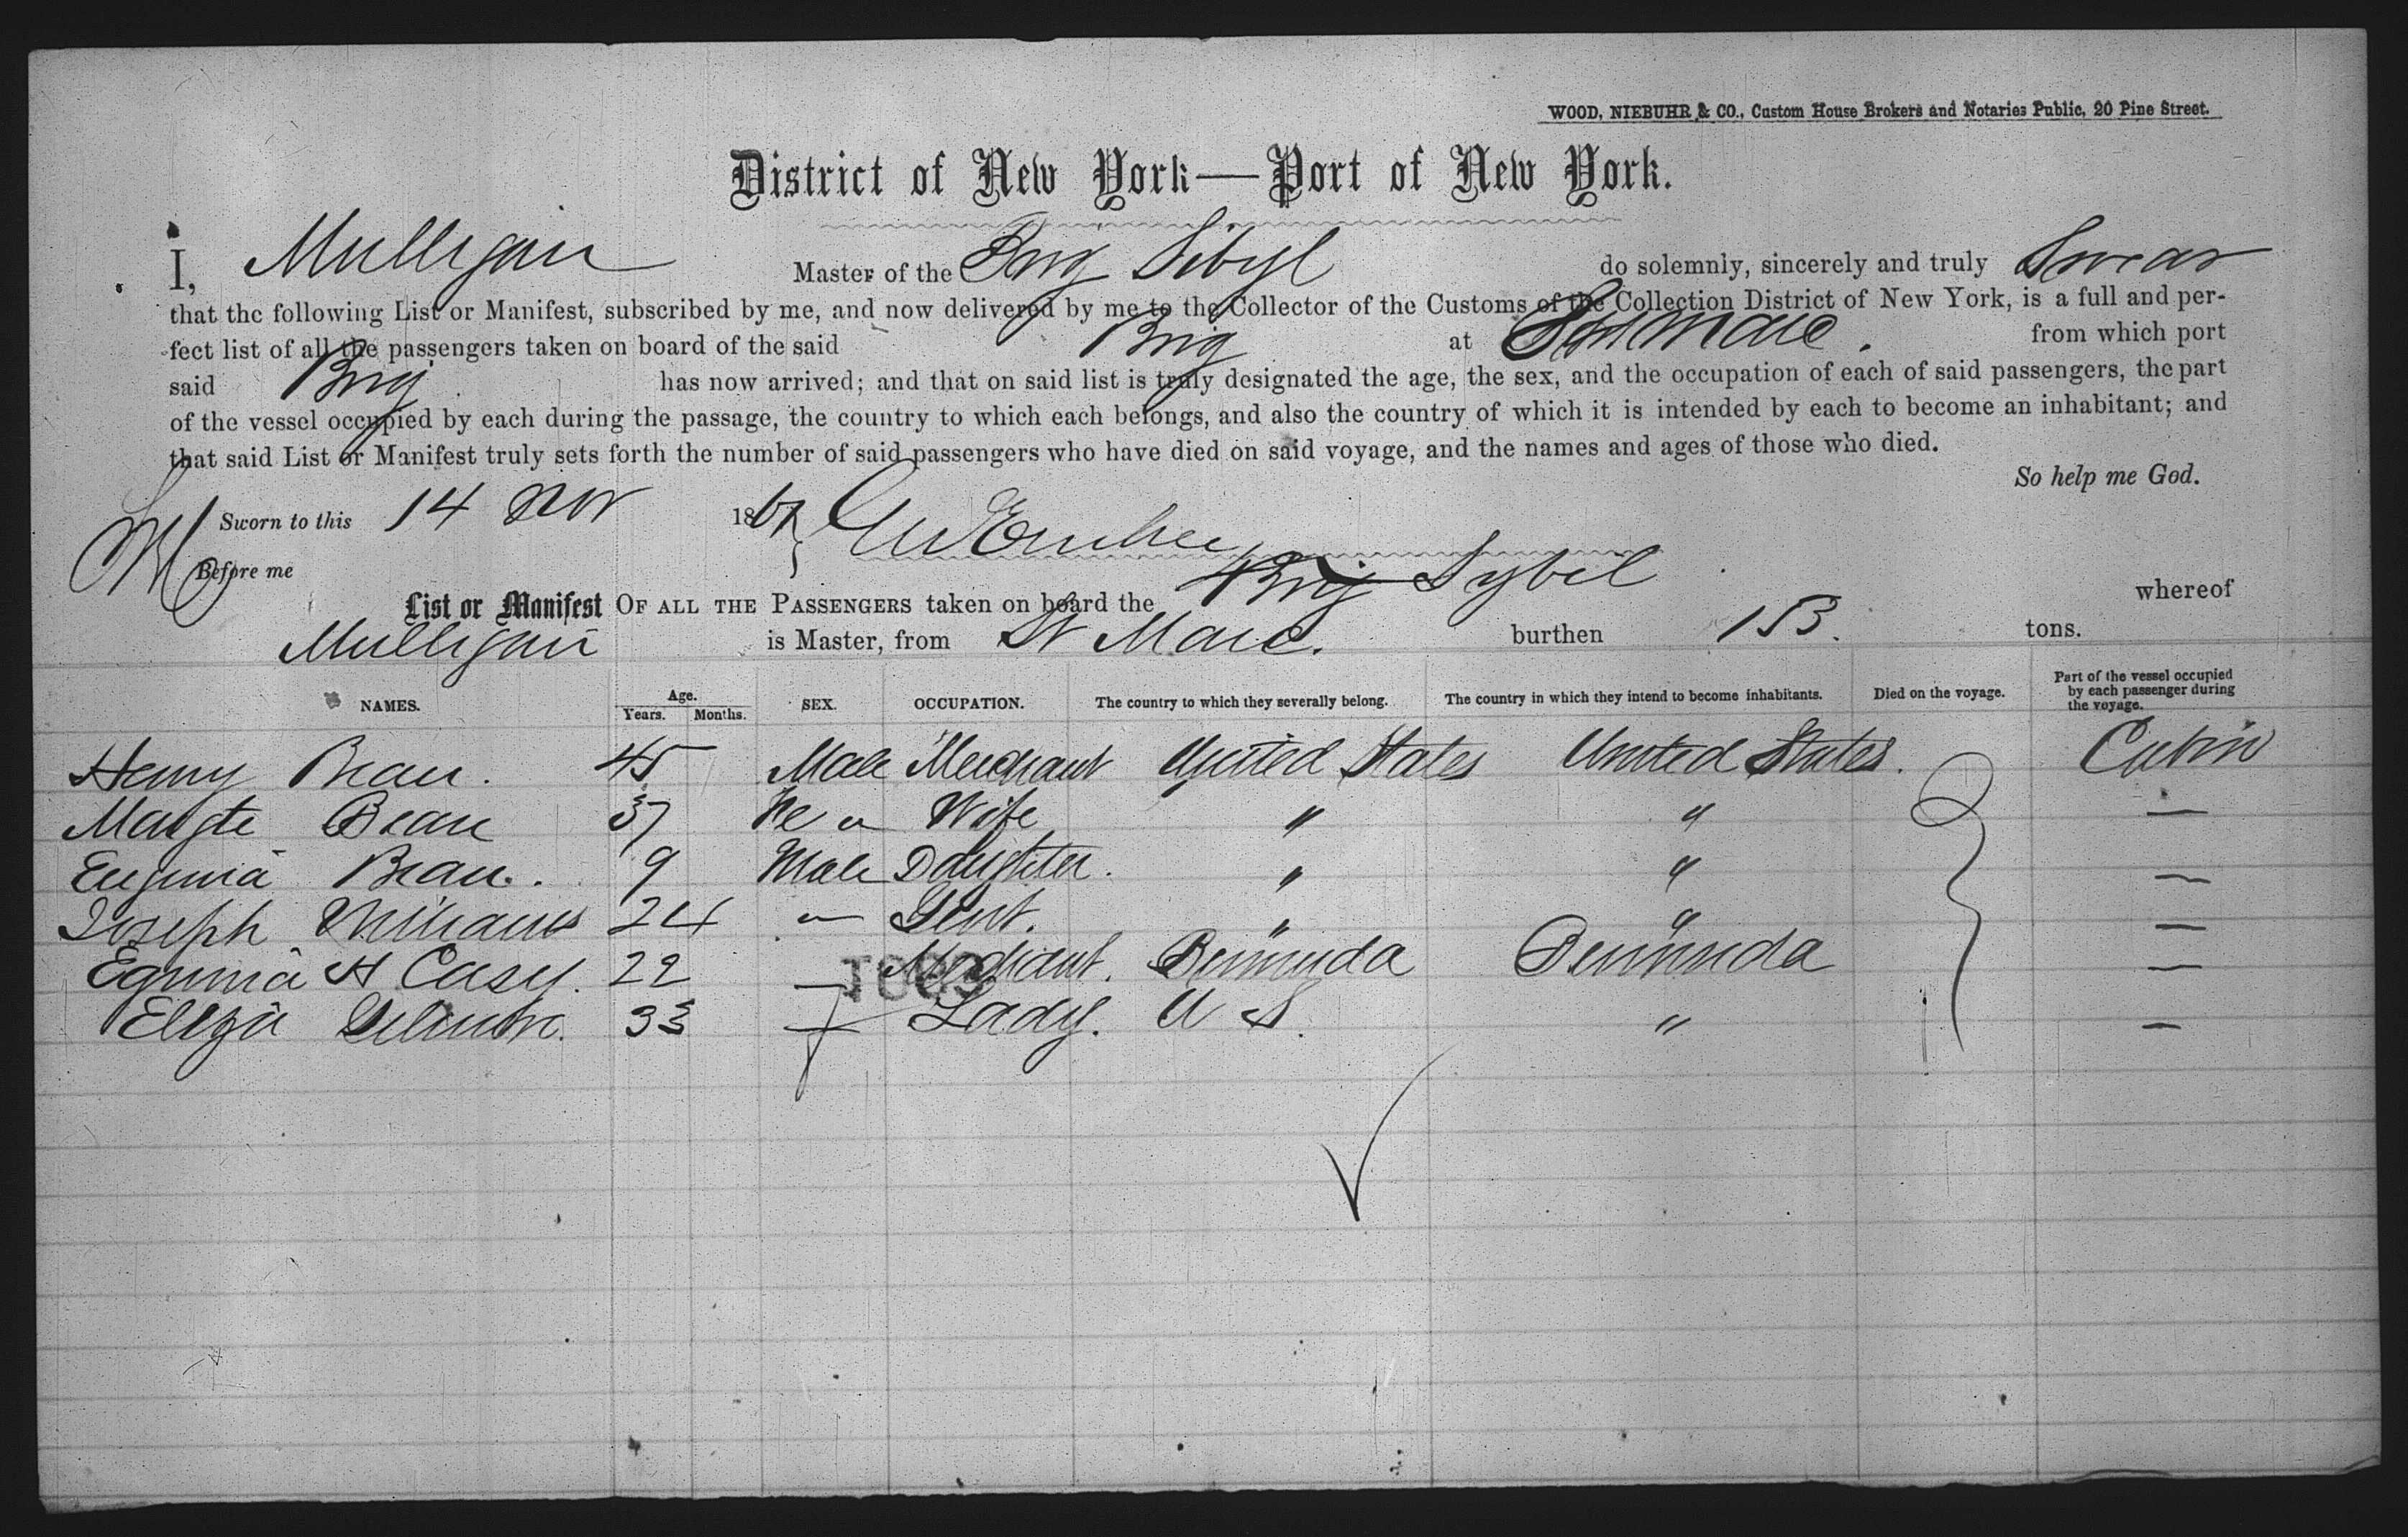 WOOD, NIEBUHR & CO., Custom House Brokers and Notaries Public, 20 Pine Street.
District of New York—Port of New York.
I, Mulligan Master of the Brig Sibyl do solemnly, sincerely and truly Swear
that the following List or Manifest, subscribed by me, and now delivered by me to the Collector of the Customs of the Collection District of New York, is a full and per-
fect list of all the passengers taken on board of the said Brig at from which port
said Brig has now arrived; and that on said list is truly designated the age, the sex, and the occupation of each of said passengers, the part
of the vessel occupied by each during the passage, the country to which each belongs, and also the country of which it is intended by each to become an inhabitant; and
that said List or Manifest truly sets forth the number of said passengers who have died on said voyage, and the names and ages of those who died.
So help me God.
Sworn to this 14 Nov 1867
Before me
List or Manifest OF ALL THE PASSENGERS taken on board the Brig Sybil whereof
Mulligan is Master, from St Marc. burthen 153. tons.
NAMES. Age. Years. Months. SEX. OCCUPATION. The country to which they severally belong. The country in which they intend to become inhabitants. Died on the voyage. Part of the vessel occupied by each passenger during the voyage.
Henry Bean. 45 Male Merchant United States United States. Cabin
Margte Bean 37 Fe " Wife " " —
Eugenia Bean. 9 Male Daughter. " " —
Joseph Williams 24 " Gent. " " —
H Casey. 22 — Merchant. Bermuda Bermuda —
Eliza 33 Lady. U S. " —